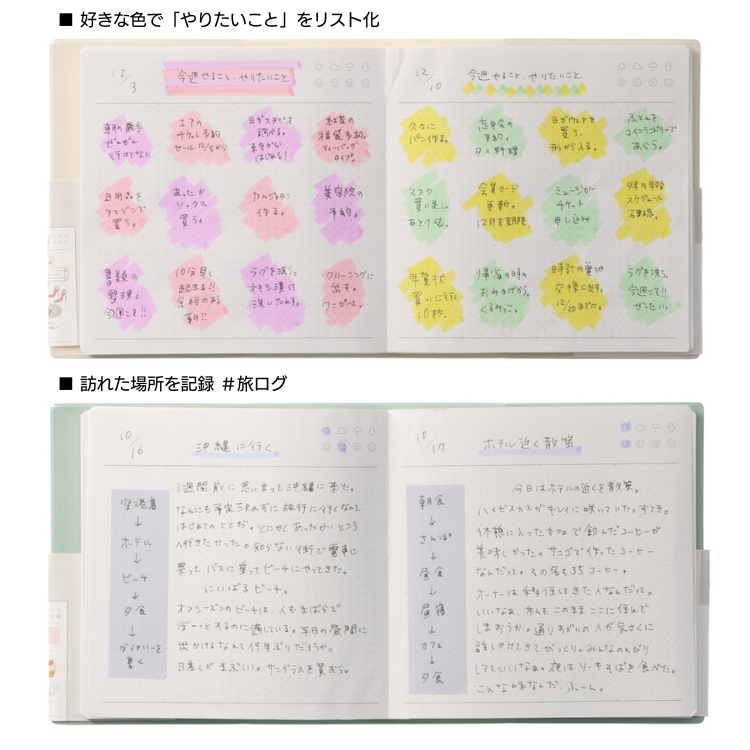 ■ 好きな色で「やりたいこと」をリスト化
12/3
今週やること、やりたいこと
朝の散歩
ぜんぜん
エアの
チケット予約
セール12/5から
ヨガスタジオ
調べる。
はじめる!
紅葉の
ティーバッグ
タイプ。
日用品を
アマゾンで
買う。
あったか
ソックス
買う。
作る。
美容院の
予約。
書類の
整理。
今週こそ!!
10分早く
起きる!!
余裕のある
朝!!
ラグを洗う。
オキシ漬け
洗いためす。
クリーニングに
出す。
ワンピース。
12/10
今週やること、やりたいこと
久々に
パン作る。
忘年会の
予約。
タイ料理。
ヨガウェアを
買う。
形から入る。
ふとんを
コインランドリーで
あらう。
マスク
買い足し。
あと1箱。
会員カード
更新。
12月末期限。
ミュージカル
チケット
申し込み
スケジュール
確認。
年賀状
買いに行く
10枚。
帰省の時の
おみやげから。
くるみっこ。
時計の電池
交換に出す。
12/20までに。
ラグを洗う。
今週こそ!!
ぜったい。
■ 訪れた場所を記録 #旅ログ
10/16
沖縄に行く
空港着
↓
ホテル
↓
ビーチ
↓
夕食
↓
ダイアリーを
書く
1週間前に思い立って沖縄に来た。
なんにも予定決めずに旅行に行くなんて
はじめてのことだ。とにかくあったかいところ
へ行きたかった。知らない街で電車に
乗って バスに乗ってビーチにやってきた。
にいばるビーチ。
オフシーズンのビーチは、人もまばらで
ぼーっとするのに適している。平日の昼間に
出かけるなんて何年ぶりだろうか。
日差しがまぶしい。サングラスを買おう。
10/17
ホテル近く散策
朝食
↓
さんぽ
↓
昼食
↓
昼寝
↓
カフェ
↓
夕食
今日はホテルの近くを散策。
ハイビスカスがキレイに咲いていた。すてき。
休憩に入ったカフェで飲んだコーヒーが
美味しかった。サンゴで作ったコーヒー
なんだって。その名も35コーヒー。
オーナーは移住してきた人なんだって。
いいなぁ、私もこのままここに住んで
しまおうか。通りすがりの人が気さくに
話しかけてきてびっくり。みんなのんびり
していていいなぁ。夜はソーキそばを食べた。
こんな味なんだ、ふーん。